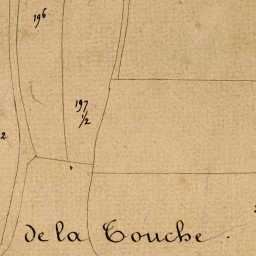 196
197
1/2
2
de la Touche.